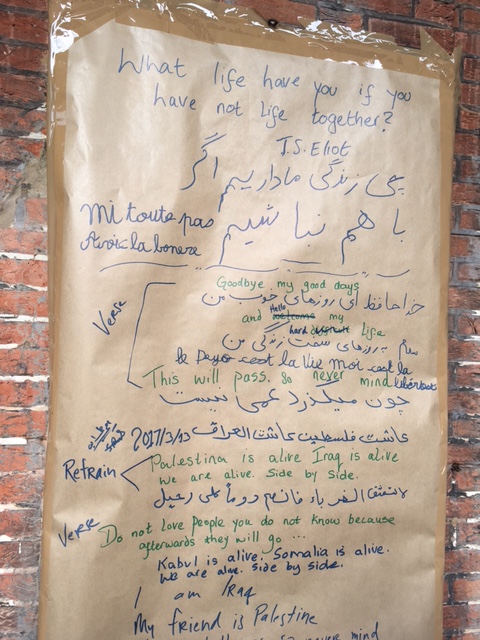 What life have you if you
have not life together?
T.S. Eliot
چی زندگی ماداریم اگر
با هم نباشیم
mi toute pas
Avoir la bonere
Goodbye my good days
Verse
خداحافظ ای روزهای خوب من
Hello
and my
hard life
سلام به روزهای سخت زندگی من
le Peyo cest la Vie moi cest la
This will pass, so never mind libertéets
چون میگذرد غمی نیست
2017/3/13 عاشت فلسطين عاشت العراق
Refrain
Palestina is alive Iraq is alive
We are alive. Side by side.
Verse
Do not love people you do not know because
afterwards they will go ...
Kabul is alive. Somalia is alive.
We are alive. Side by side.
I am IRaq
My friend is Palestine
never mind